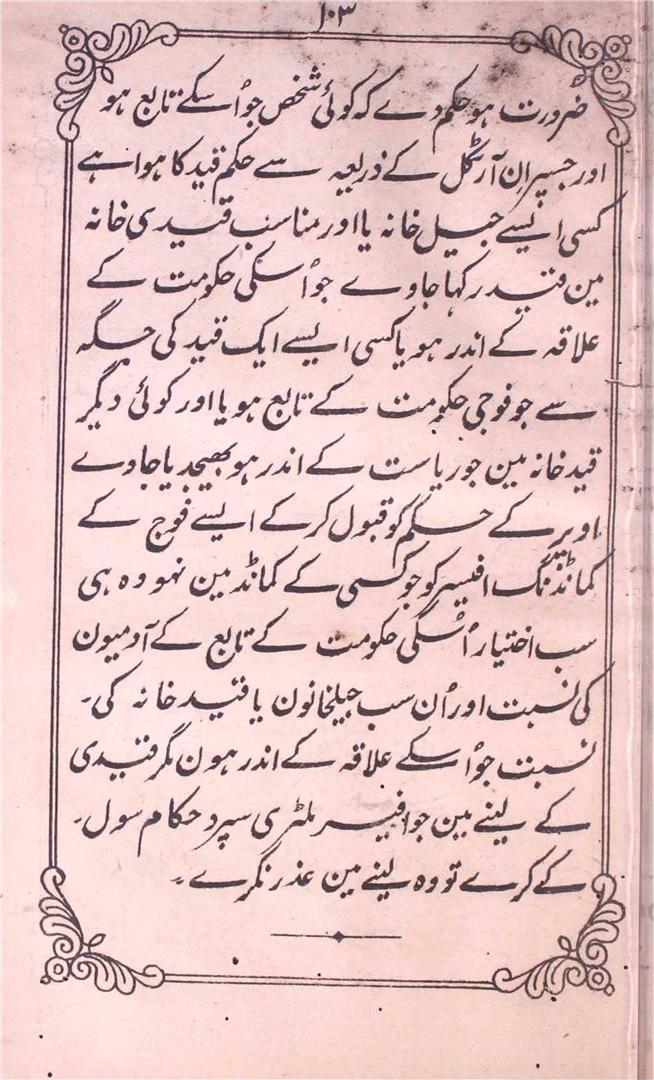 ۱۰۳
ضرورت ہو حکم دے کہ کوئی شخص جو اُسکے تابع ہو
اور جسپر ان آرٹکل کے ذریعہ سے حکم قید کا ہوا ہے
کسی ایسے جیل خانہ یا اور مناسب قیدی خانہ
مین قید رکہا جاوے جو اُسکی حکومت کے
علاقہ کے اندر ہو یا کسی ایسے ایک قید کی جگہ
سے جو فوجی حکومت کے تابع ہو یا اور کوئی دیگر
قید خانہ مین جو ریاست کے اندر ہو بھیجد یا جاوے
اوپر کے حکم کو قبول کرکے ایسے فوج کے
کمانڈنگ افیسر کو جو کسی کے کمانڈ مین نہو وہ ہی
سب اختیار اُسکی حکومت کے تابع کے آدمیون
کی نسبت اور اُن سب جیلخانون یا قید خانہ کی۔
نسبت جو اُسکے علاقہ کے اندر ہون مگر قیدی
کے لینے مین جو افیسر ملٹری سپرد حکام سول۔
کے کرے تو وہ لینے مین عذر نکرے۔